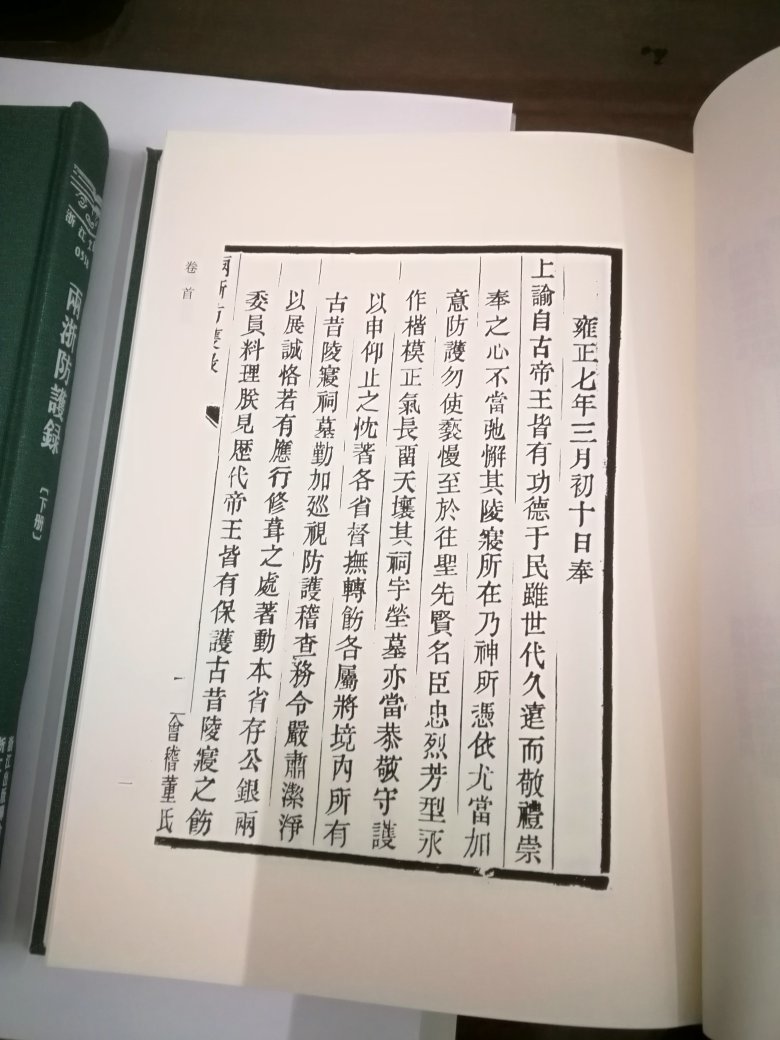 雍正七年三月初十日奉
上諭自古帝王皆有功德于民雖世代久遠而敬禮崇
奉之心不當弛懈其陵寢所在乃神所憑依尤當加
意防護勿使褻慢至於往聖先賢名臣忠烈芳型永
作楷模正氣長留天壤其祠宇塋墓亦當恭敬守護
以申仰止之忱著各省督撫轉飭各屬將境內所有
古昔陵寢祠墓勤加廵視防護稽查務令嚴肅潔淨
以展誠恪若有應行修葺之處著動本省存公銀兩
委員料理朕見歷代帝王皆有保護古昔陵寢之飭
兩浙防護彔
一
會稽董氏
卷首
一
浙江文
兩浙防護録
〔下册〕